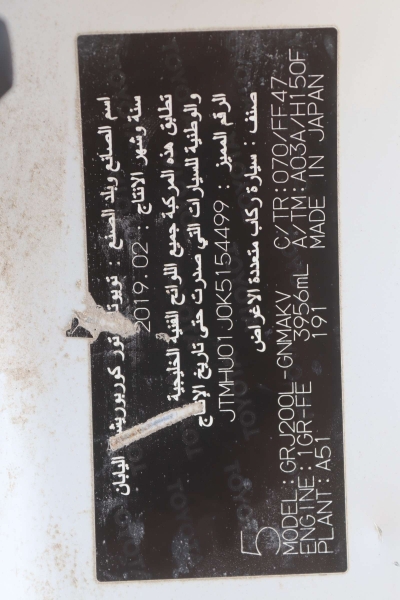 اسم الصانع وبلد الصنع : تويوتا موتور كوربوريشن اليابان
سنة وشهر الانتاج : 2019.02
تطابق هذه المركبة جميع اللوائح الفنية الخليجية
والوطنية للسيارات التي صدرت حتى تاريخ الإنتاج
الرقم المميز : JTMHU01J0K5154499
صنف : سيارة ركاب متعددة الاغراض
5
MODEL:GRJ200L-GNMAKV C/TR:070/FF47
ENGINE:1GR-FE 3956mL A/TM:A03A/H150F
PLANT:A51 191 MADE IN JAPAN